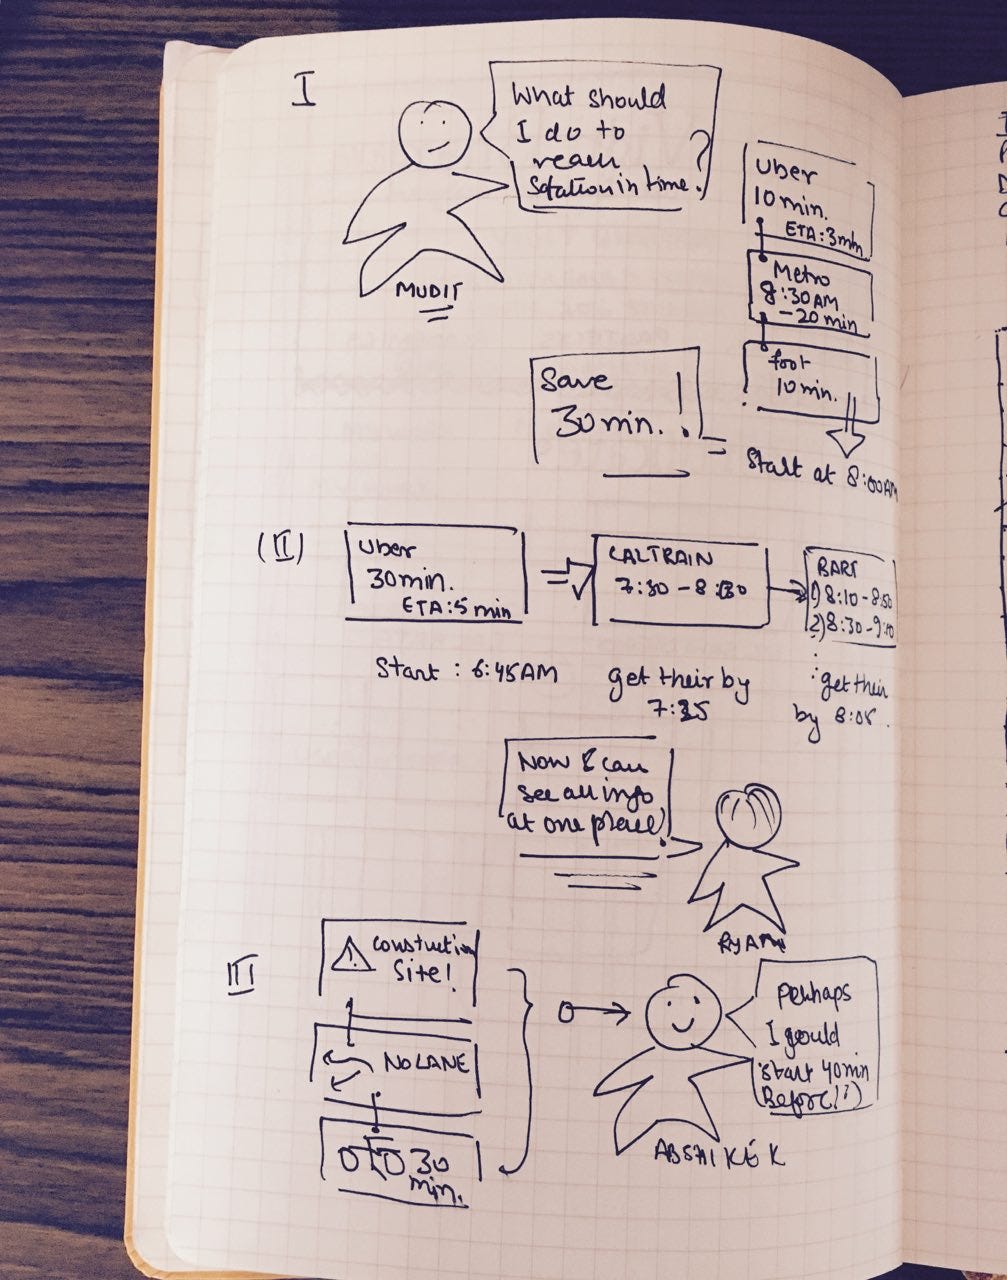 I
What should
I do to
reach
Sotation in time.?
MUDIT
Uber
10 min.
ETA: 3min
Metro
8:30AM
- 20 min
foot
10 min.
Save
30 min. !
Start at 8:00AM
(II)
Uber
30min.
ETA: 5 min
CALTRAIN
7:30 - 8:30
BART
1) 8:10 - 8:50
2) 8:30 - 9:10
Start : 6:45AM
get their by
7:25
get their
by 8:05.
Now I can
see all info
at one place!
RYAN
III
⚠ Constuction
Site!
NO LANE
30
min.
Perhaps
I
start 40min
Before(!?)
ABSHIKEK